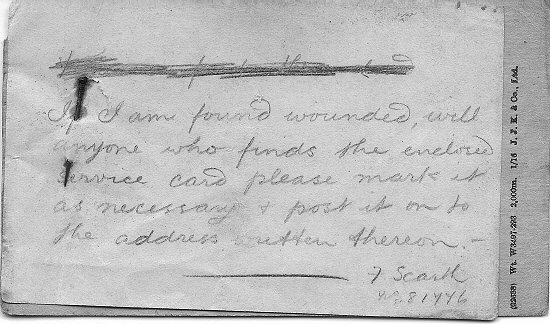 If I am found wounded, will
anyone who finds the enclosed
service card please mark it
as necessary & post it on to
the address written thereon. –
F Scarth
81776
(32638) Wt. W3497-293 2,000m. 1/16 J. J. K. & Co., Ltd.